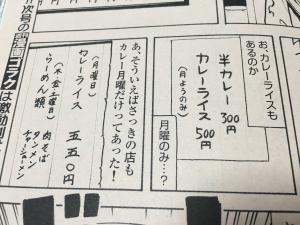 お、カレーライスも
あるのか
半カレー 300円
カレーライス 500円
(月ようのみ)
月曜のみ…?
あ、そういえばさっきの店も
カレー月曜だけってあった!
(月曜日)
カレーライス 五五〇円
(木・金・土曜日)
らーめん類
肉そば
タンメン
チャーシューメン
次号の
漫画ゴラクは激動刊